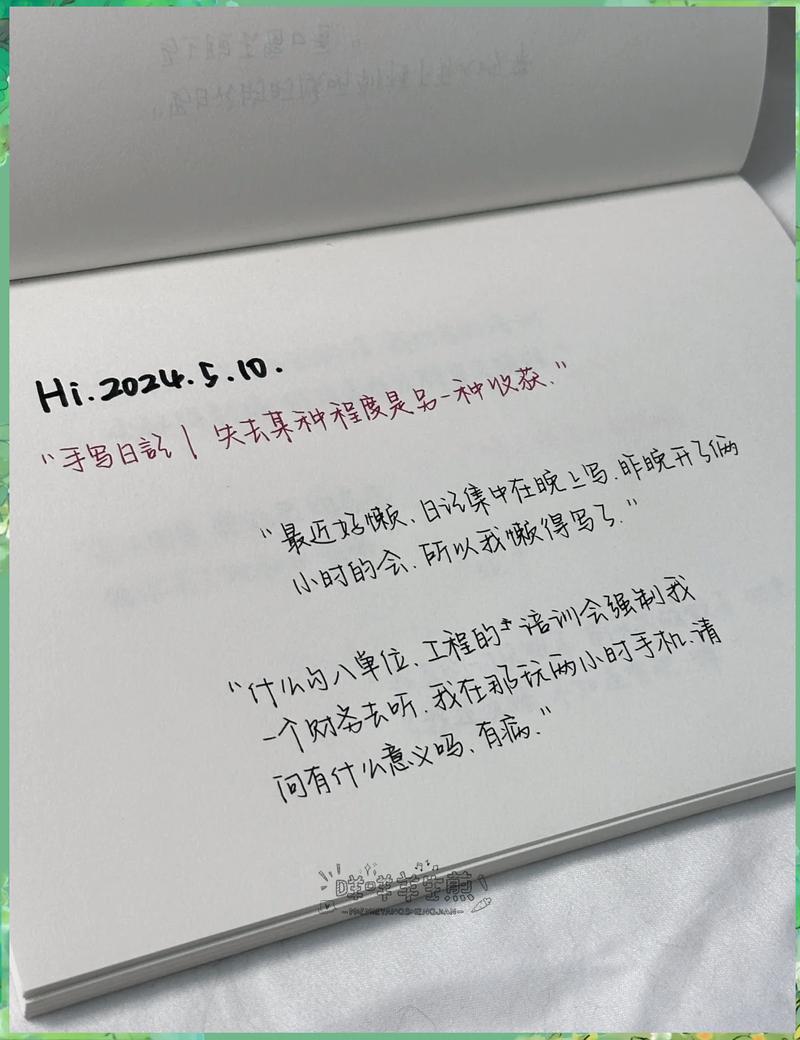 Hi.2024.5.10.
“手写日記 | 失去某种程度是另一种收获.”
“最近好懒、日记集中在晚上写.昨晚开了俩
小时的会.所以我懒得写了.”
“什么勾八单位.工程的培训会强制我
一个财务去听.我在那玩两小时手机.请
问有什么意义吗.有病.”
咩咩羊生煎
-MIEMIEYANGSHENGJIAN-